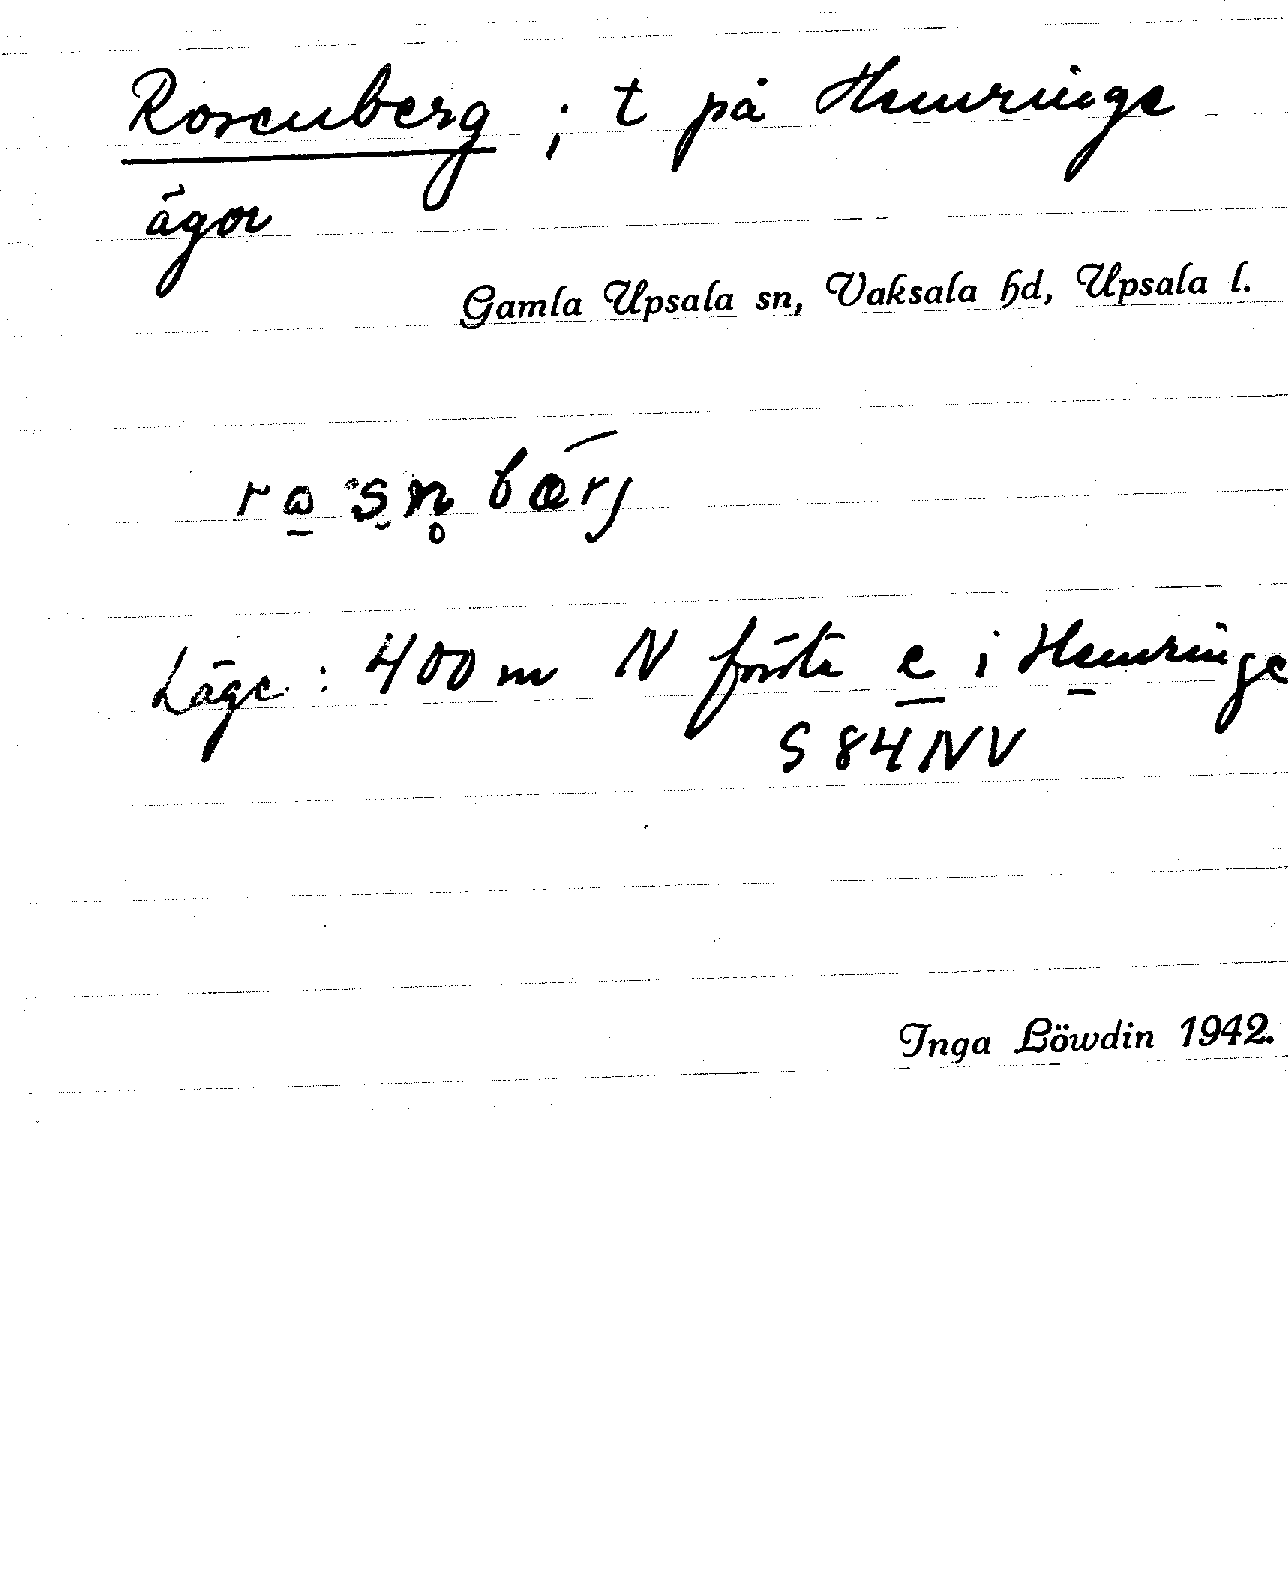 Rosenberg ; t på Hemringe
ägor
Gamla Upsala sn, Vaksala hd, Upsala l.
Läge : 400 m N första e i Hemringe
S 84 NV
Inga Löwdin 1942.